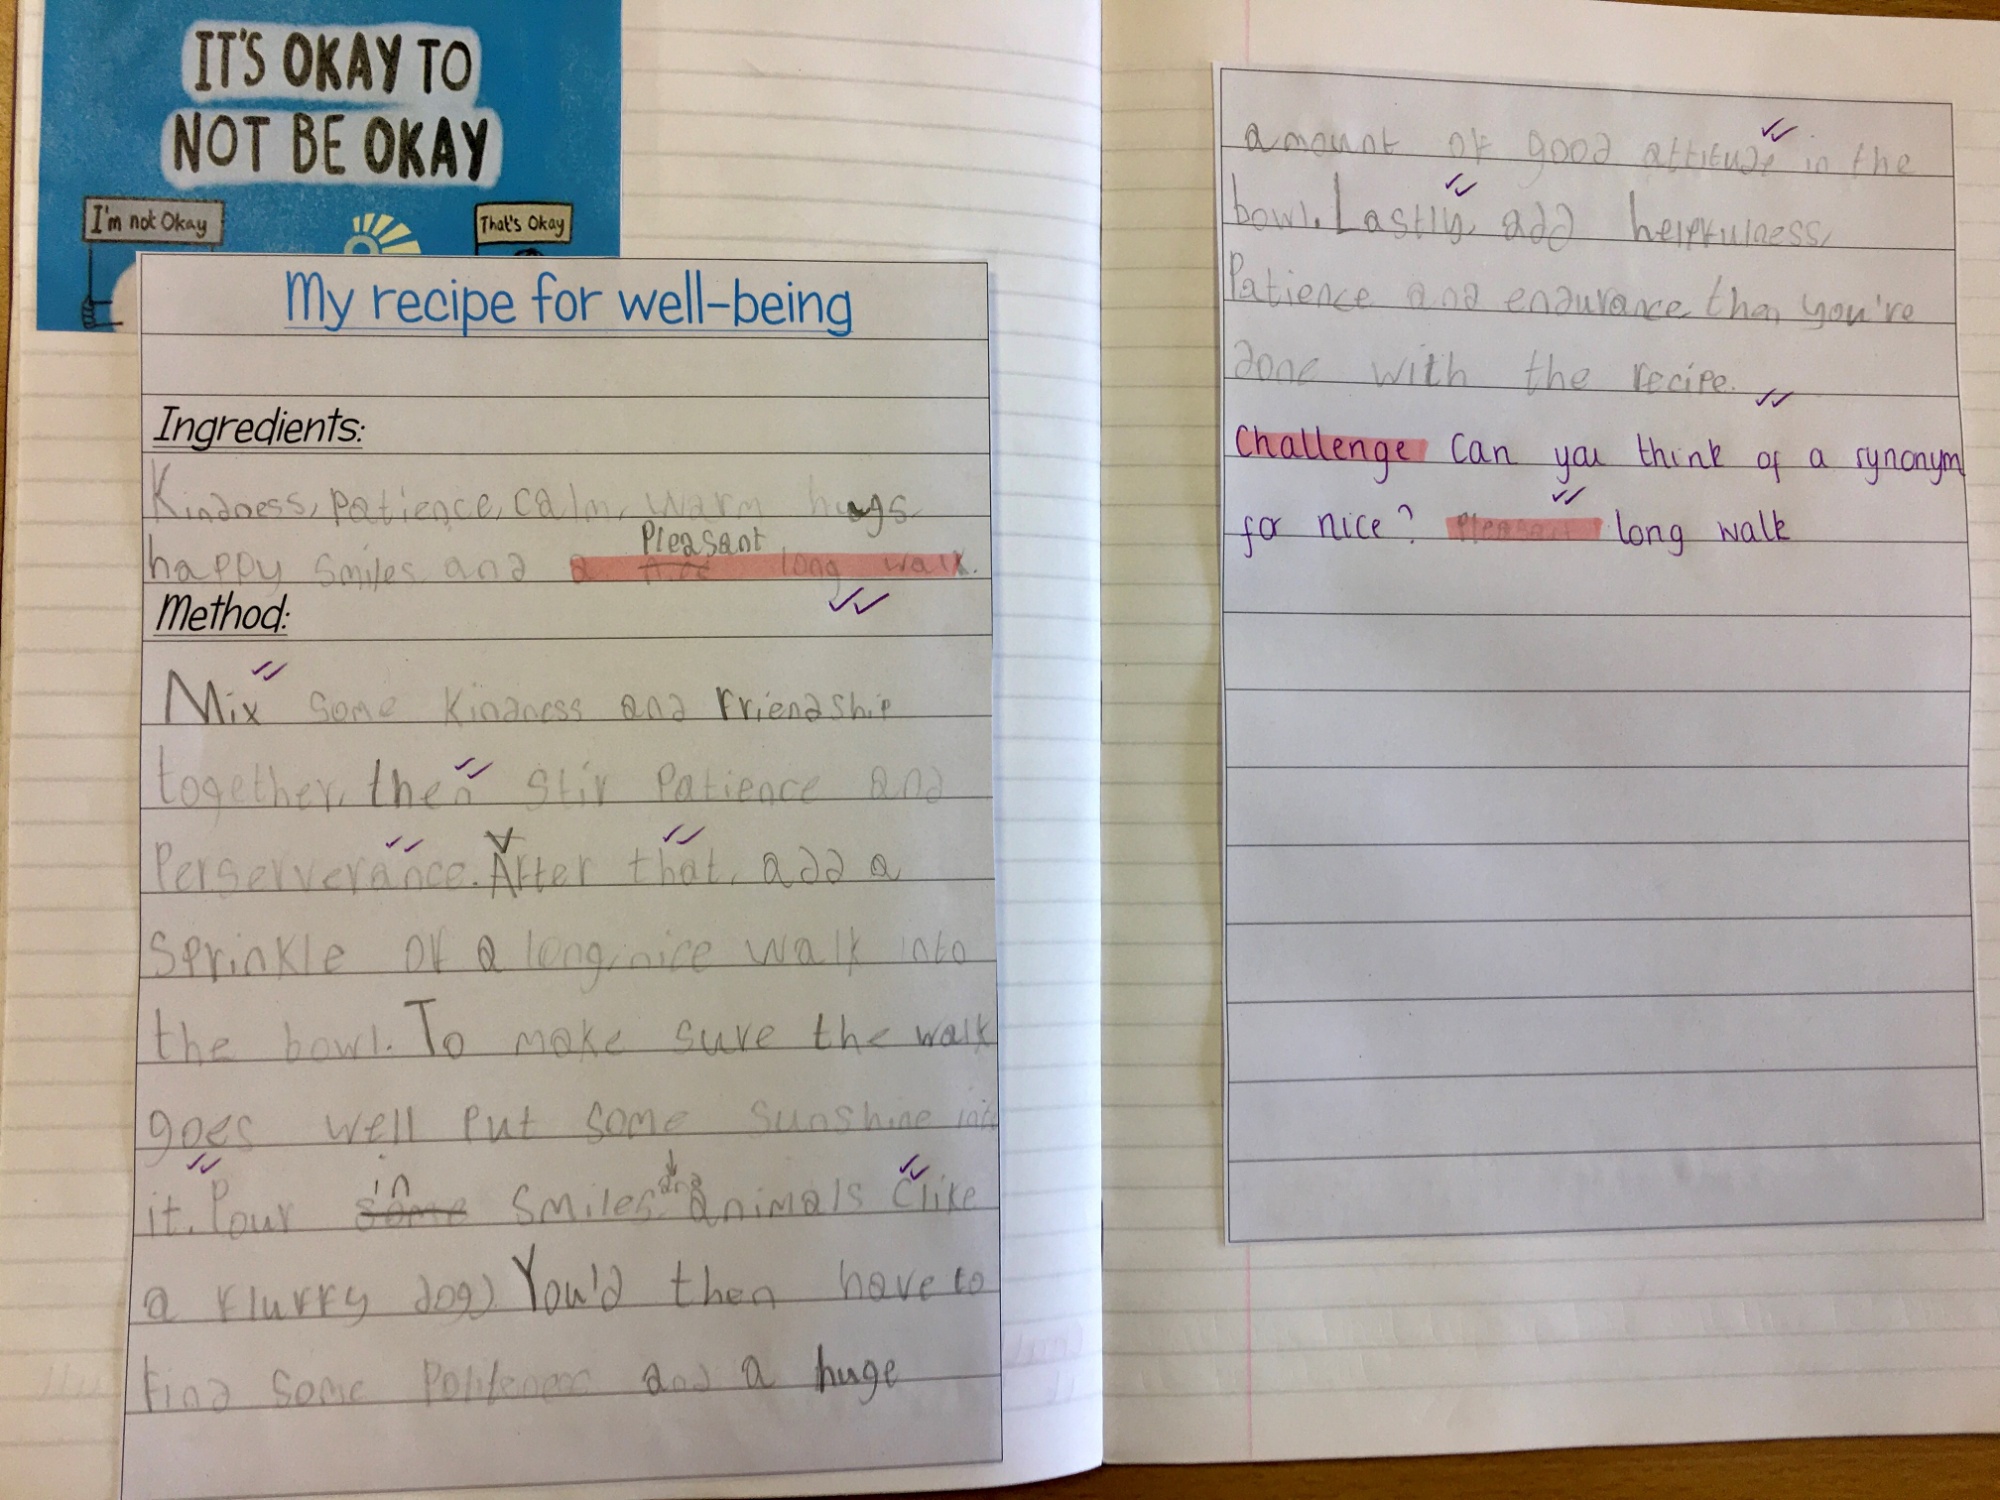 IT'S OKAY TO
NOT BE OKAY
I'm not Okay
That's Okay
My recipe for well-being
Ingredients:
Kindness, patience, calm, warm hugs,
Pleasant
happy smiles and a nice long walk.
Method:
Mix some kindness and friendship
together, then stir patience and
Perserverance. After that, add a
sprinkle of a long, nice walk into
the bowl. To make sure the walk
goes well put some sunshine into
in and
it. Pour some smiles animals (like
a flurry dog) You'd then have to
find some Politeness and a huge
amount of good attitude in the
bowl. Lastly, add helpfulness,
Patience and endurance then you're
done with the recipe.
Challenge Can you think of a synonym
for nice? Pleasant long walk